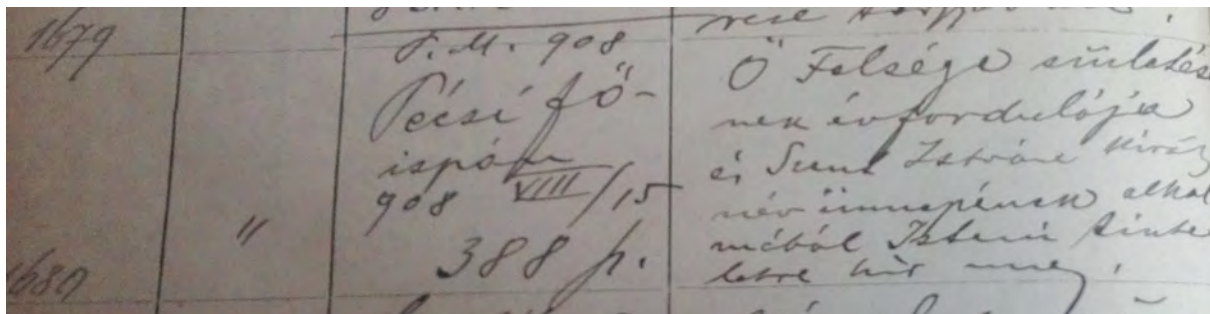 1679
P. M. 908
Pécsi fő-
ispán
908 VIII/15
"
388 p.
Ő Felsége születésé
nek évfordulója
és Szent István király
név ünnepének alkal
mából Isteni tiszte
letre hív meg.
1680